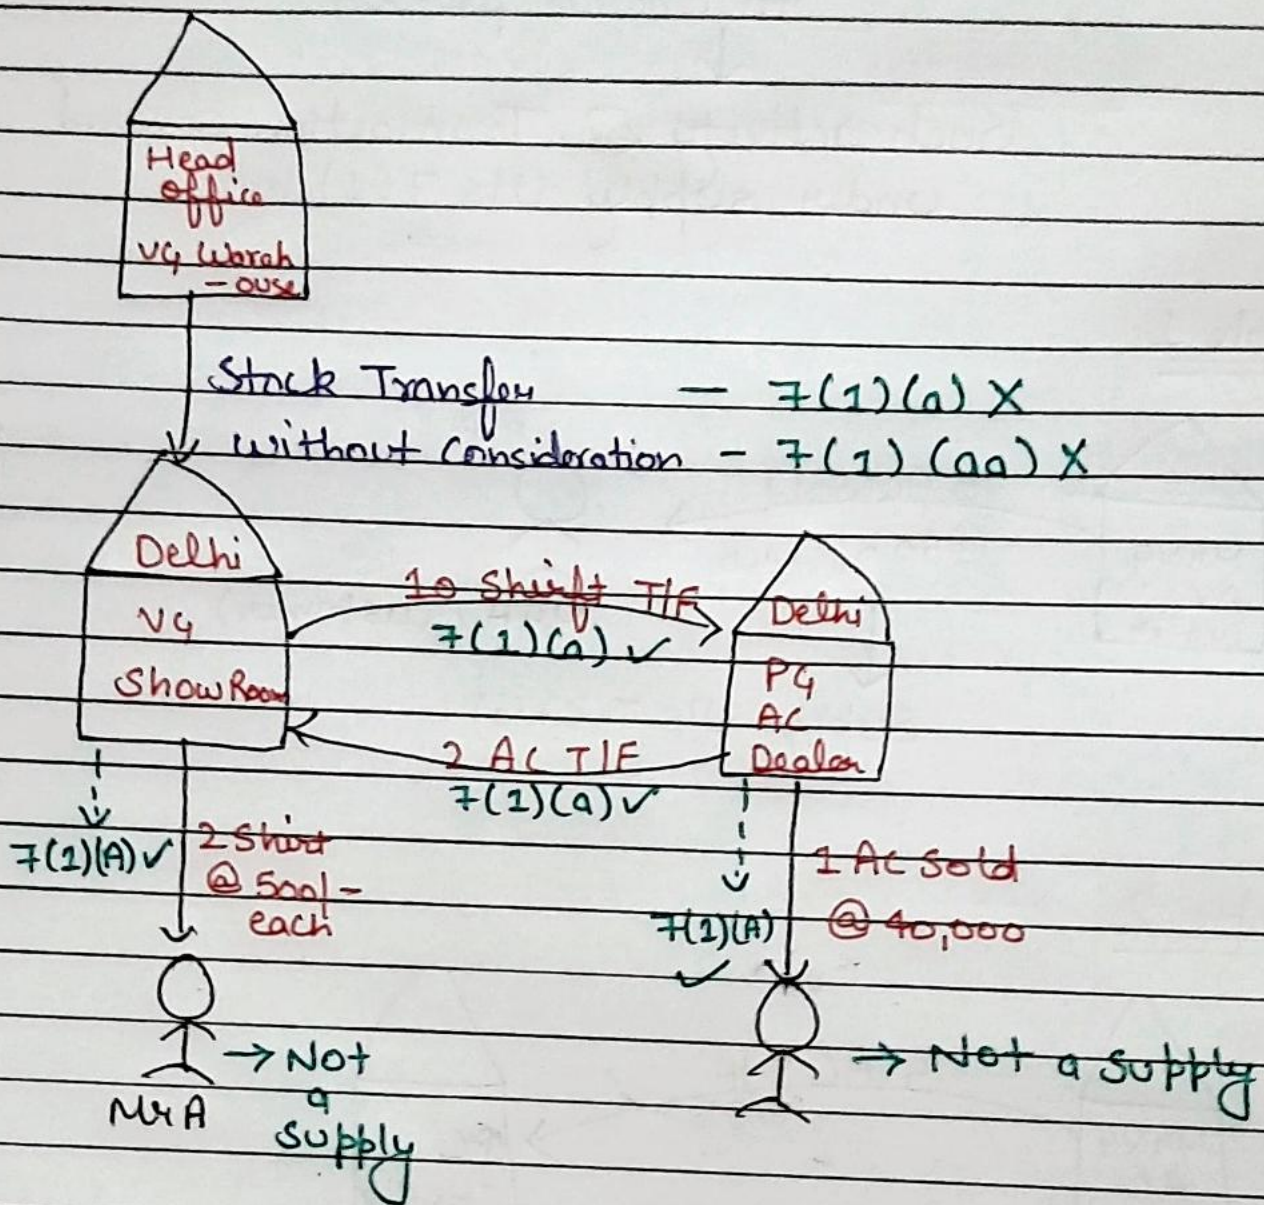 Head
office
VG Wareh
- ouse
Stock Transfer - 7(1)(a) X
without Consideration - 7(1)(aa) X
Delhi
VG
Show Room
10 Shirft T/F
7(1)(a) ✓
Delhi
PG
AC
Dealer
2 AC T/F
7(1)(a) ✓
7(1)(A) ✓
2 Shirt
@ 500/-
each
7(1)(A)
✓
1 AC Sold
@ 40,000
→ Not
a
supply
Mr A
→ Not a supply